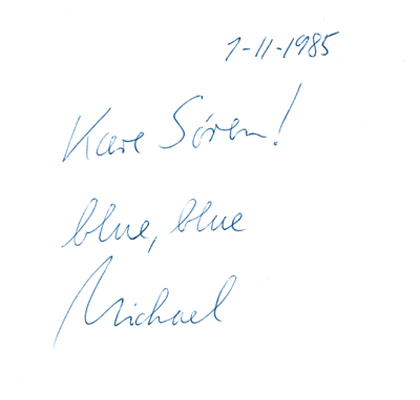 1-11-1985
Kære Søren!
blue, blue
Michael